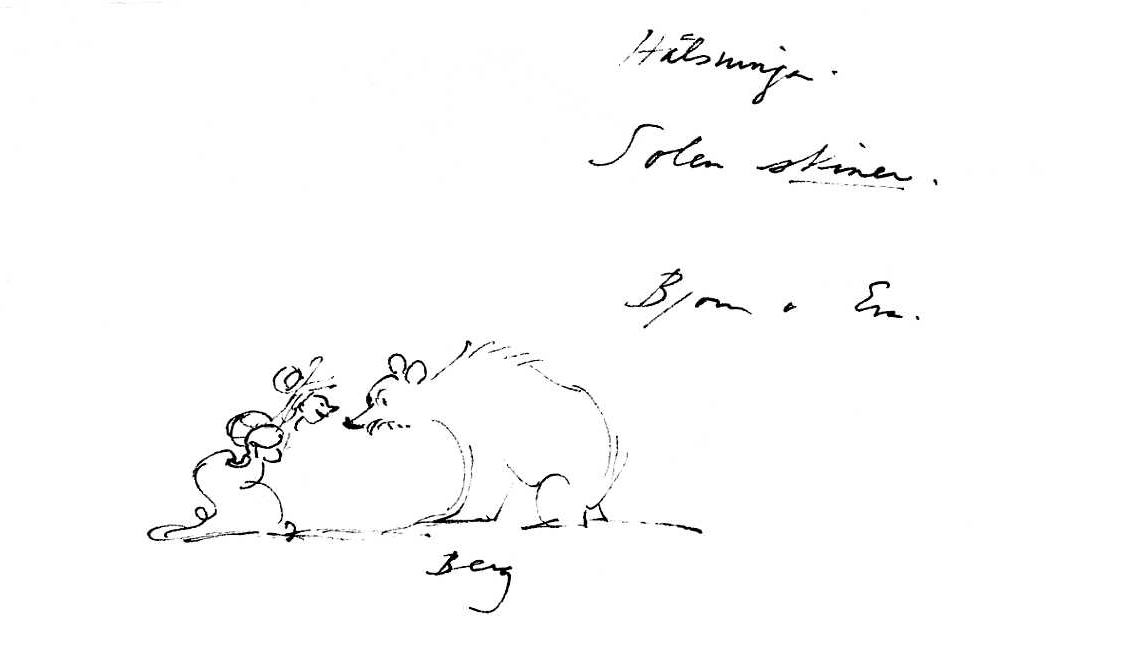 Hälsninga.
Solen skiner.
Björn o Eva.
Berg